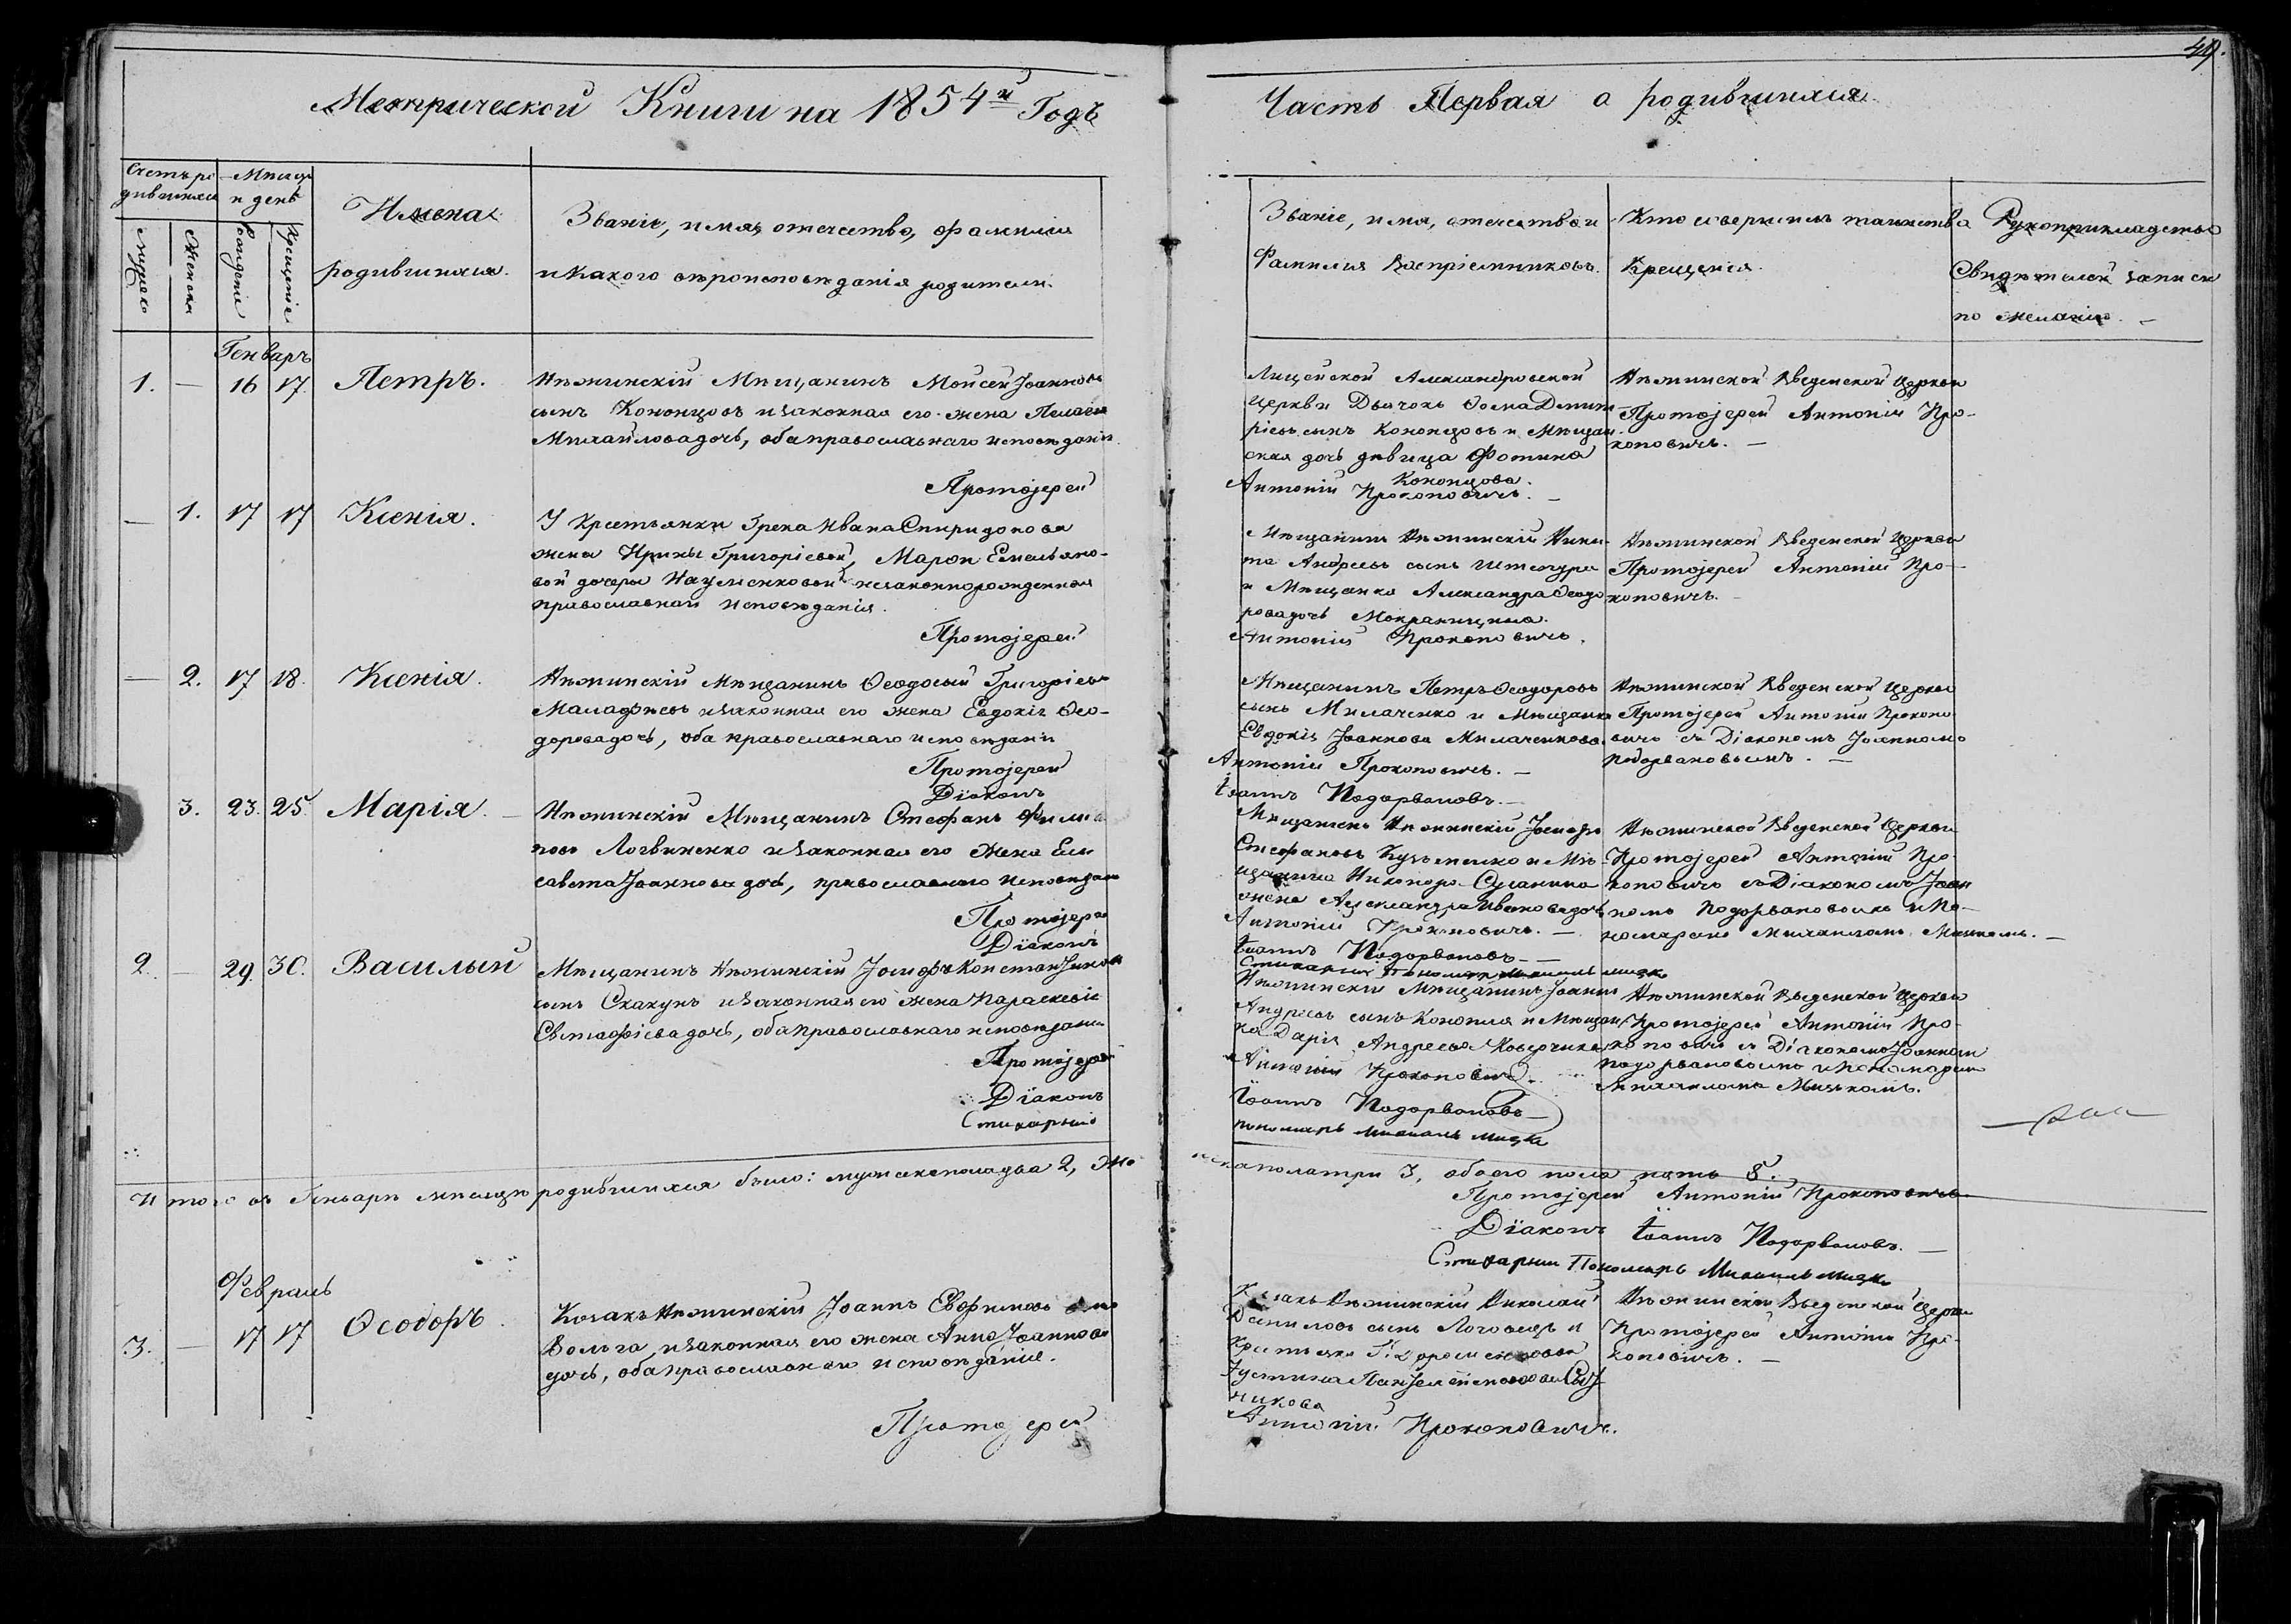 49.
Метрической Книги на 1854й Годъ
Часть Первая о родившихся.
Счетъ ро-
дившихся
Мѣсяцъ
и день
Мужеска
Женска
Рожденія
Крещенія
Имена
родившихся.
Званіе, имя, отечество, фамилія
и какого вѣроисповѣданія родители.
Званіе, имя, отечество и
Фамилия Воспріемниковъ.
Кто совершилъ таинство
Крещенія.
Рукоприкладство
Свидѣтелей записи
по желанію. —
Генварь
1. — 16 17. Петръ.
Нѣжинскій Мѣщанинъ Мойсей Іоанновъ
сынъ Кононцовъ и законная его жена Пелагея
Михайлова дочь, оба православнаго исповѣданія.
Протоіерей
Лицейской Александровской
церкви Дьячокъ Ѳома Дмит-
ріевъ сынъ Кононцовъ и Мѣщан-
ская дочь дѣвица Фотина
Кононцова.
Антоній Прокоповичъ. —
Нѣжинской Введенской Церкви
Протоіерей Антоній Про-
коповичъ. —
— 1. 17 17 Ксенія.
У крестьянки Грека Ивана Спиридонова
жены Ирины Григоріевой, Марѳи Емельяно-
вой дочери Науменковой незаконнорожденная
православнаго исповѣданія.
Протоіерей
Мѣщанинъ Нѣжинскій Ники-
та Андреевъ сынъ
и Мѣщанка Александра Ѳеодо
рова дочь
Антоній Прокоповичъ.
Нѣжинской Введенской Церкви
Протоіерей Антоній Про-
коповичъ. —
— 2. 17 18. Ксенія.
Нѣжинскій Мѣщанинъ Ѳеодосій Григоріевъ
Маладфѣевъ и законная его жена Евдокія Ѳео-
дорова дочь, оба православнаго исповѣданія
Протоіерей
Діаконъ
Мѣщанинъ Петръ Ѳеодоровъ
сынъ Милаченко и Мѣщанка
Евдокія Іоаннова Милаченкова.
Антоній Прокоповичъ. —
Іоаннъ Подорвановъ. —
Нѣжинской Введенской Церкви
Протоіерей Антоній Прокопо
вичъ съ Діакономъ Іоанномъ
Подорвановымъ. —
3. 23. 25. Марія. —
Нѣжинскій Мѣщанинъ Стефанъ Филип
повъ Логвиненко и законная его жена Ели
савета Іоаннова дочь, православнаго исповѣданія
Протоіерей
Діаконъ
Мѣщанинъ Нѣжинскій Іосифъ
Стефановъ Кузьменко и Мѣ-
щанина Никонора Суланина
жена Александра Иванова дочь
Антоній Прокоповичъ. —
Іоаннъ Подорвановъ —
Стихарный Пономарь Михаилъ Мицкъ
Нѣжинской Введенской Церкви
Протоіерей Антоній Про-
коповичъ съ Діакономъ Іоан
номъ Подорвановымъ и По-
номаремъ Михаиломъ Мицкомъ. —
2. — 29. 30. Василій
Мѣщанинъ Нѣжинскій Іосифъ Константиновъ
сынъ Скакунъ и законная его жена Параскевія
Евстафіева дочь, оба православнаго исповѣданія
Протоіерей
Діаконъ
Стихарный
Нѣжинскій Мѣщанинъ Іоаннъ
Андреевъ сынъ Конопля и Мѣщан
ка Дарія Андреева
Антоній Прокоповичъ.
Іоаннъ Подорвановъ —
пономарь Михаилъ Мицкъ
Нѣжинской Введенской Церкви
Протоіерей Антоній Про-
коповичъ съ Діакономъ Іоанномъ
Подорвановымъ и Пономаремъ
Михаиломъ Мицкомъ.
Итого въ Генварѣ мѣсяцѣ родившихся было: мужеска пола два 2, же
неска пола три 3, обоего пола пять 5.
Протоіерей Антоній Прокоповичъ.
Діаконъ Іоаннъ Подорвановъ. —
Стихарный Пономарь Михаилъ Мицкъ
Февраль
3. — 17 17 Ѳеодоръ.
Козакъ Нѣжинскій Іоаннъ Евфимовъ сынъ
Вольга, и законная его жена Анна Іоаннова
дочь, оба православнаго исповѣданія.
Протоіерей
Козакъ Нѣжинскій Николай
Даниловъ сынъ и
Крестьянка
Іустина
никова
Антоній Прокоповичъ.
Нѣжинской Введенской Церкви
Протоіерей Антоній Про-
коповичъ. —